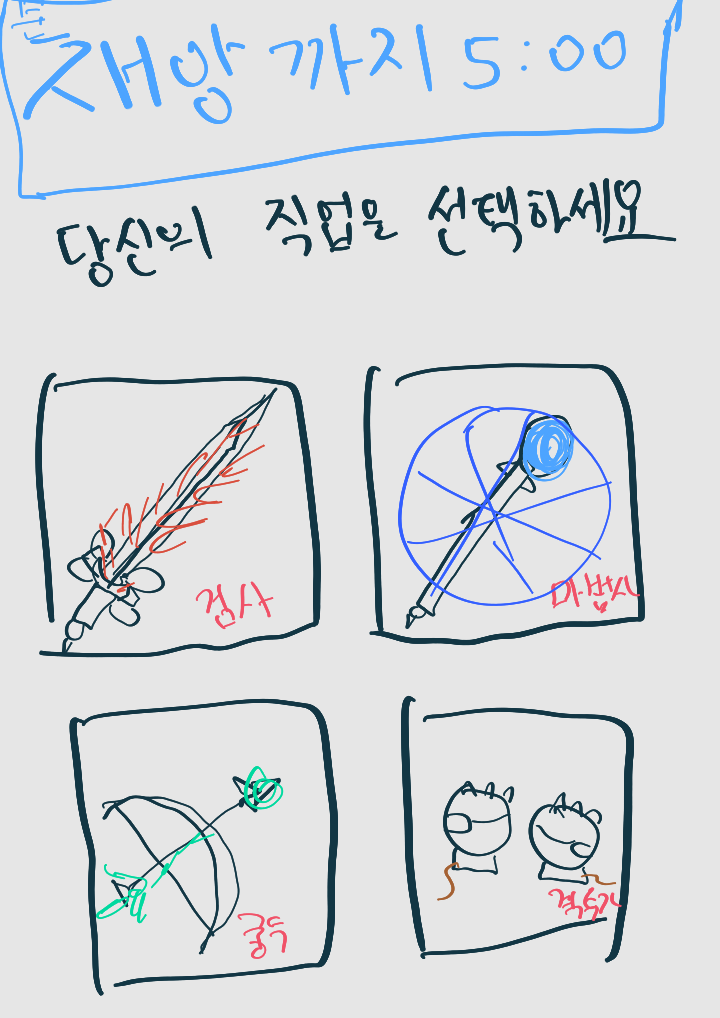 재앙까지 5:00
당신의 직업을 선택하세요
검사
마법사
궁수
격투가